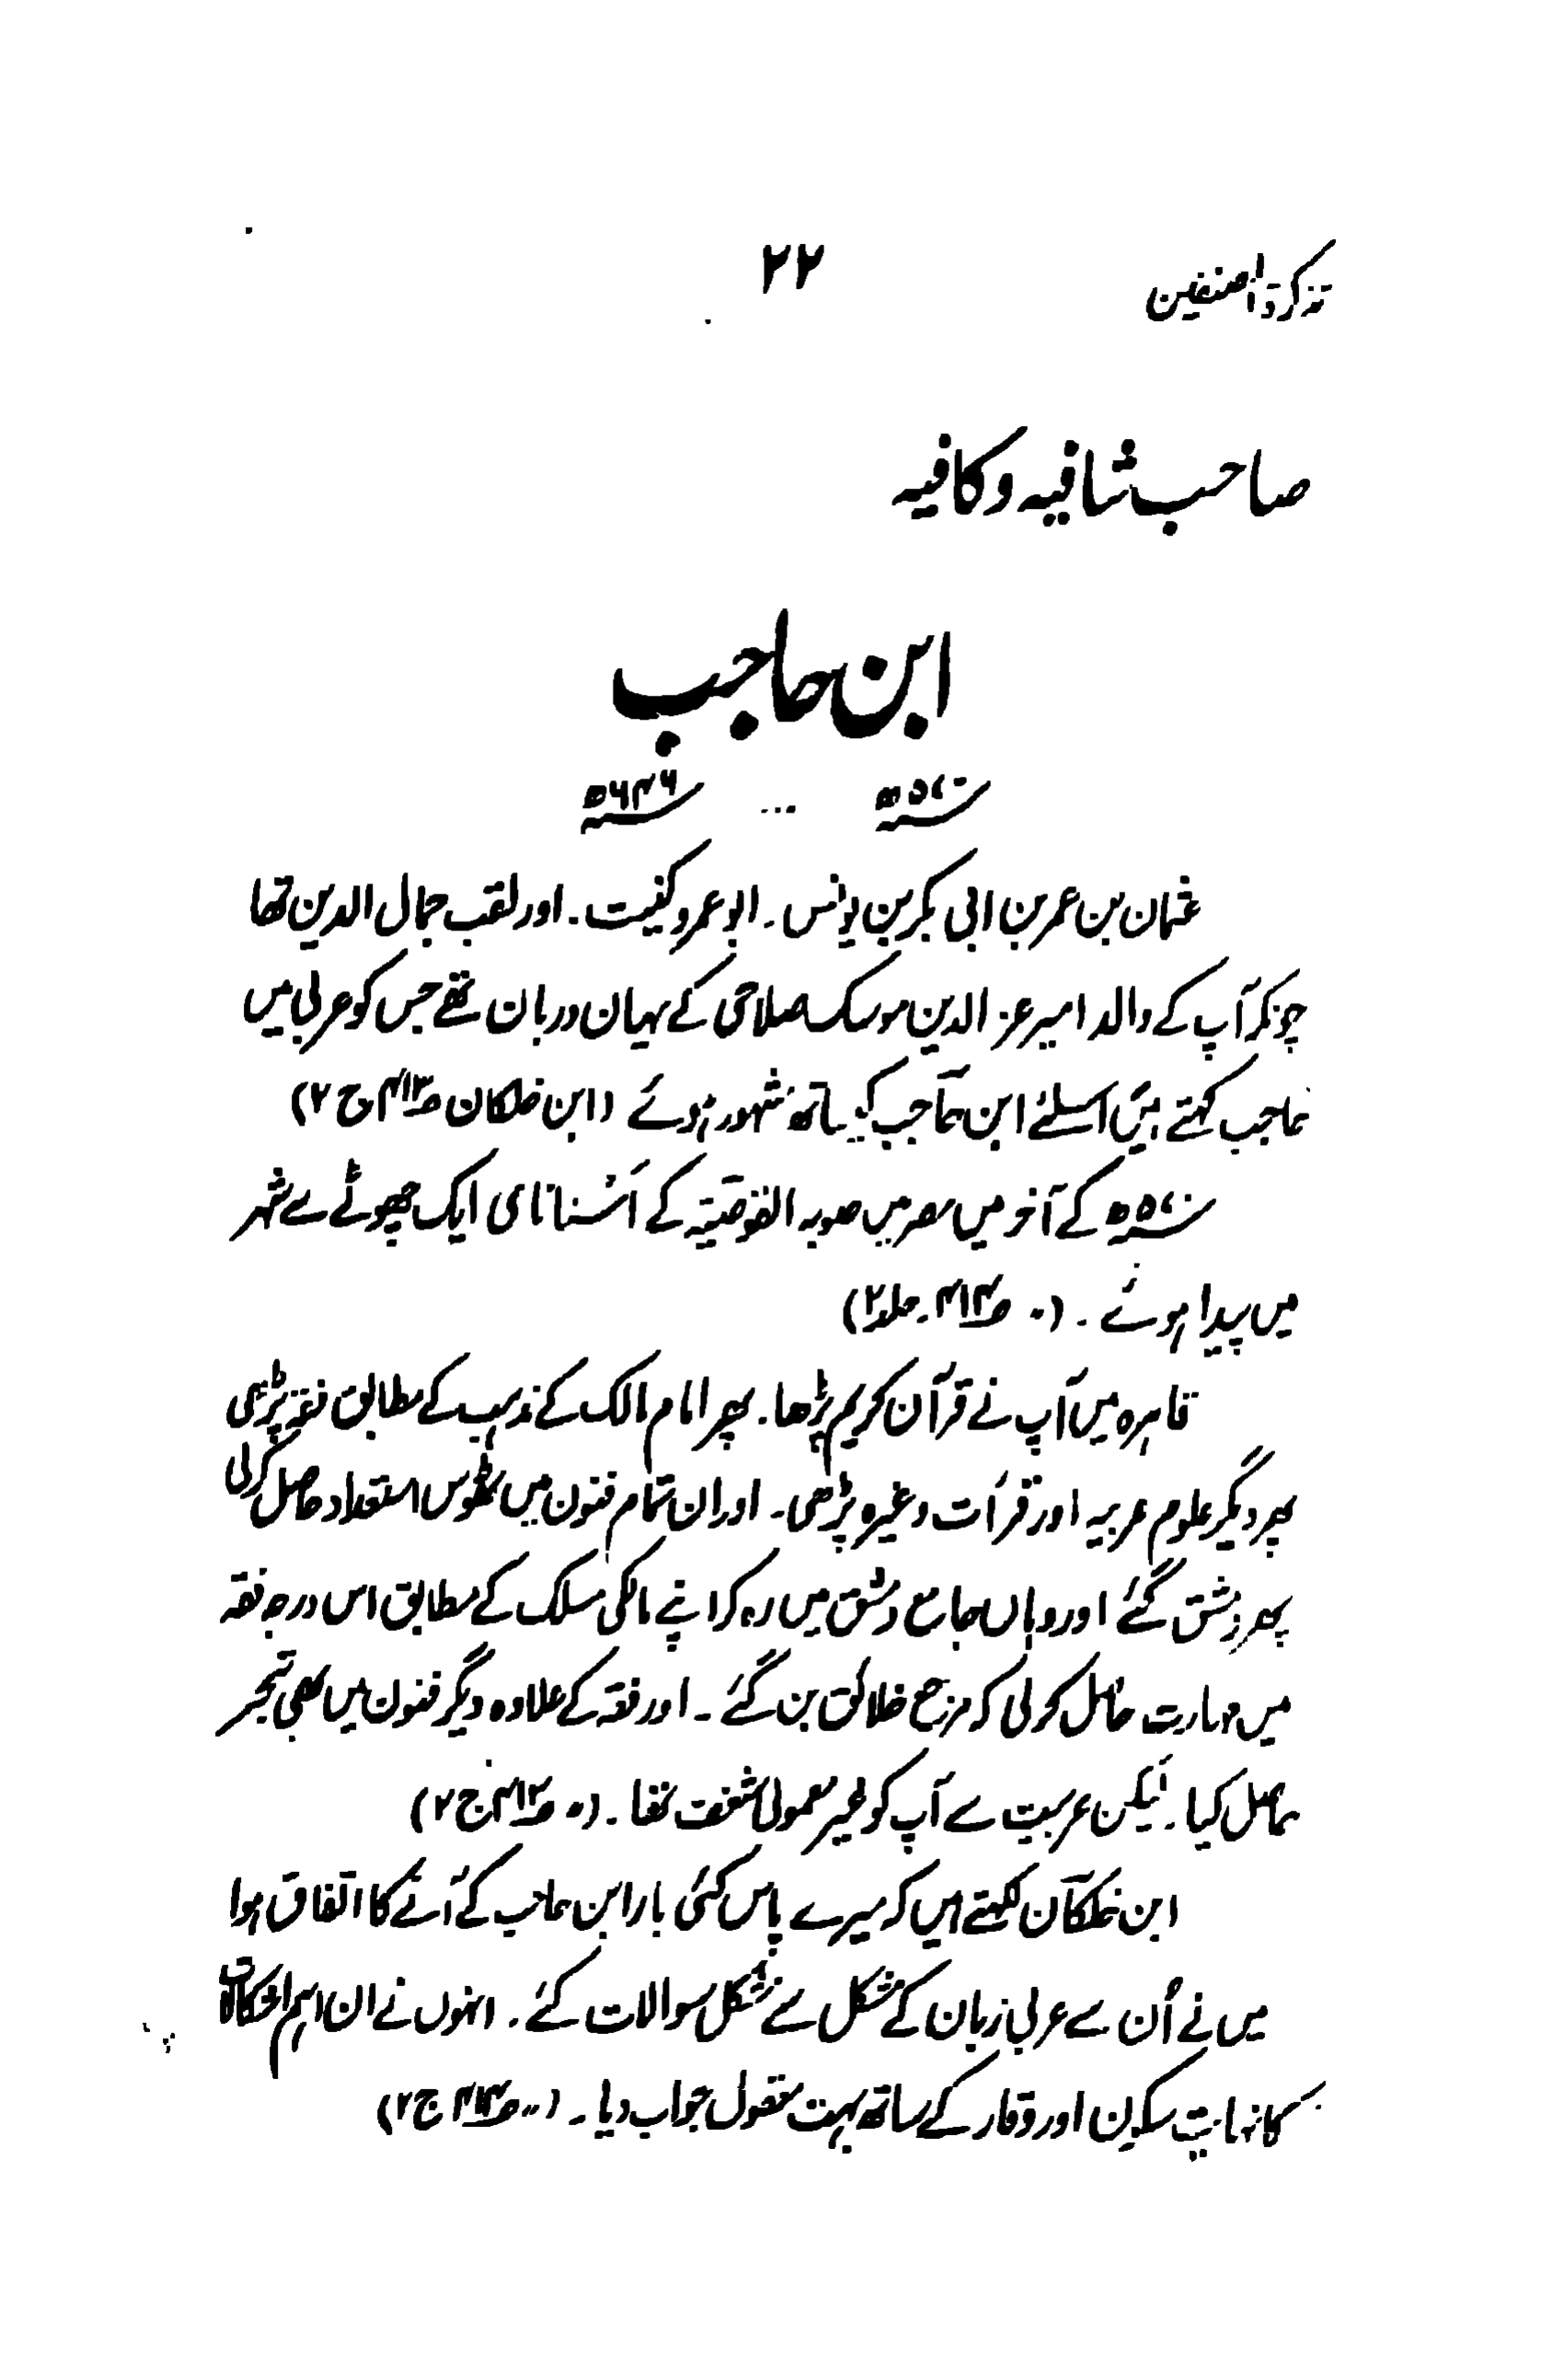 تذکرۃ المصنفین
۲۲
صاحب شافیہ و کافیہ
ابن حاجب
۵۷۰ھ ... ۶۴۶ھ
عثمان بن عمر بن ابی بکر بن یونس ۔ ابو عمرو کنیت ۔ اور لقب جمال الدین تھا
چونکہ آپ کے والد امیر عز الدین موسک صلاحی کے یہاں دربان تھے جس کو عربی میں
حاجب کہتے ہیں اسلئے ابن حاجب کے ساتھ مشہور ہوئے (ابن خلکان ج ۲)
۵۷۰ھ کے آخر میں مصر میں صوبہ القوصیۃ کے اَسْنا نامی ایک چھوٹے سے شہر
میں پیدا ہوئے ۔ (۰ ص۳۱۴ ۔ جلد۲)
قاہرہ میں آپ نے قرآن کریم پڑھا ۔ پھر امام مالک کے مذہب کے مطابق فقہ پڑھی
پھر دیگر علوم عربیہ اور قرأت وغیرہ پڑھی ۔ اور ان تمام فنون میں ٹھوس استعداد حاصل کرلی
پھر دمشق گئے اور وہاں جامع دمشق میں رہ کر اپنے مالکی مسلک کے مطابق اس درجہ فقہ
میں مہارت حاصل کرلی کہ مرجع خلائق بن گئے ۔ اور فقہ کے علاوہ دیگر فنون میں بھی تبحر
حاصل کیا ۔ لیکن عربیت سے آپ کو غیر معمولی شغف تھا ۔ (۰ ج ۲)
ابن خلکان لکھتے ہیں کہ میرے پاس کئی بار ابن حاجب کے آنے کا اتفاق ہوا
میں نے اُن سے عربی زبان کے مشکل سے مشکل سوالات کئے ۔ انہوں نے ان اہم
کا نہایت سکون اور وقار کے ساتھ بہت معقول جواب دیا ۔ (۰۰ ج ۲)